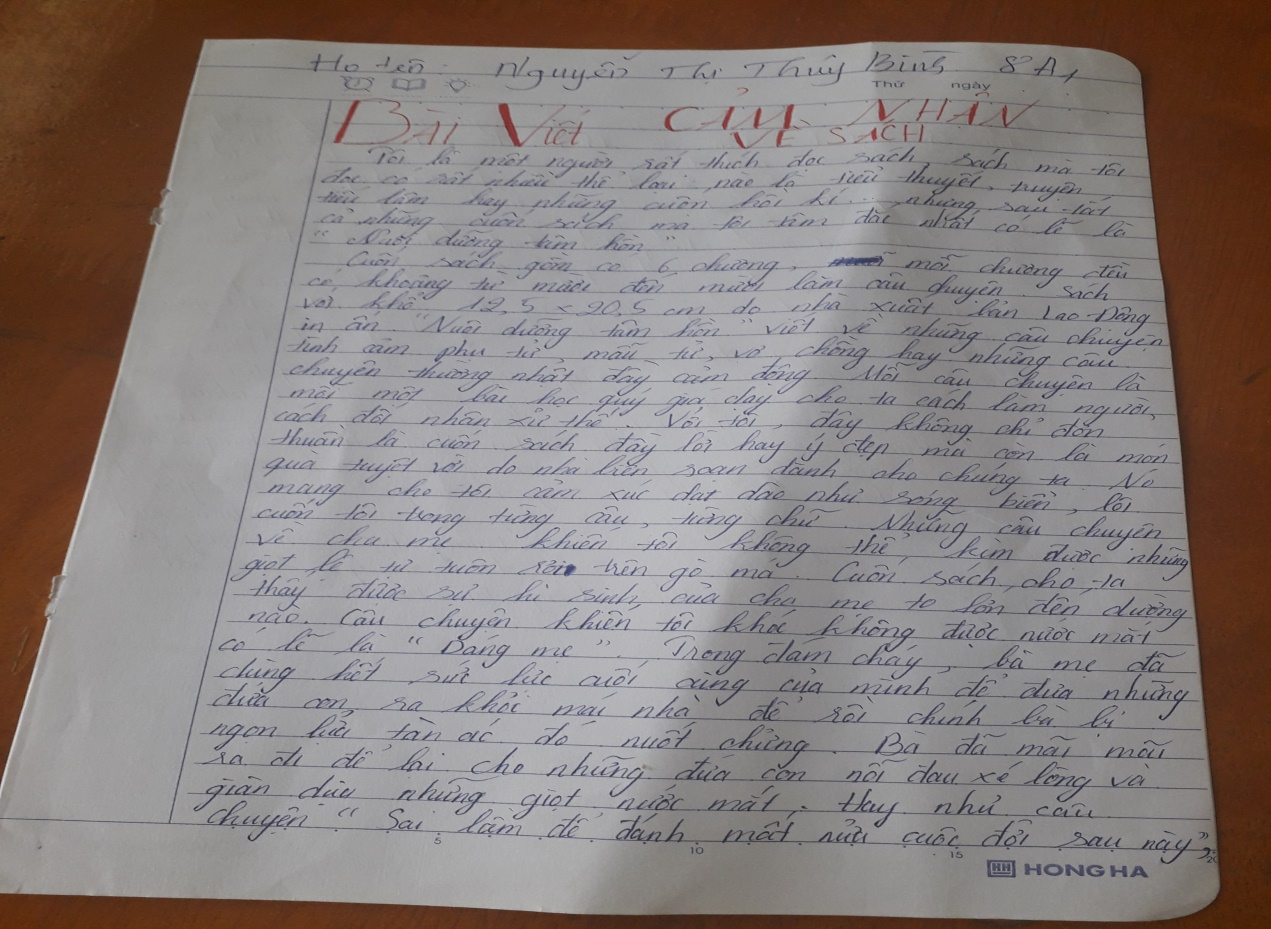 Họ tên: Nguyễn Thị Thúy Bình 8A1
Thứ ngày
BÀI Viết CẢM NHẬN
VỀ SÁCH
Tôi là một người rất thích đọc sách, sách mà tôi
đọc có rất nhiều thể loại nào là tiểu thuyết, truyện
tiếu lâm hay những cuốn hồi kí... nhưng sau tất
cả những cuốn sách mà tôi tâm đắc nhất có lẽ là
"Nuôi dưỡng tâm hồn"
Cuốn sách gồm có 6 chương, mỗi chương đều
có khoảng từ mười đến mười lăm câu chuyện. Sách
với khổ 12,5 × 20,5 cm do nhà xuất bản Lao Động
in ấn. "Nuôi dưỡng tâm hồn" viết về những câu chuyện
tình cảm phụ tử, mẫu tử, vợ chồng hay những câu
chuyện thường nhật đầy cảm động. Mỗi câu chuyện là
mỗi một bài học quý giá dạy cho ta cách làm người,
cách đối nhân xử thế. Với tôi, đây không chỉ đơn
thuần là cuốn sách đầy lời hay ý đẹp mà còn là món
quà tuyệt vời do nhà biên soạn dành cho chúng ta. Nó
mang cho tôi cảm xúc dạt dào như sóng biển, lôi
cuốn tôi trong từng câu, từng chữ. Những câu chuyện
về cha mẹ khiến tôi không thể kìm được những
giọt lệ từ tuôn rơi trên gò má. Cuốn sách cho ta
thấy được sự hi sinh của cha mẹ to lớn đến dường
nào. Câu chuyện khiến tôi khóc không được nước mắt
có lẽ là "Dáng mẹ". Trong đám cháy, bà mẹ đã
dùng hết sức lực cuối cùng của mình để đưa những
đứa con ra khỏi mái nhà để rồi chính bà bị
ngọn lửa tàn ác đó nuốt chửng. Bà đã mãi mãi
ra đi để lại cho những đứa con nỗi đau xé lòng và
giàn dụa những giọt nước mắt. Hay như câu
chuyện "Sai lầm để đánh mất nửa cuộc đời sau này",
5 10 15 20
HH HONG HA